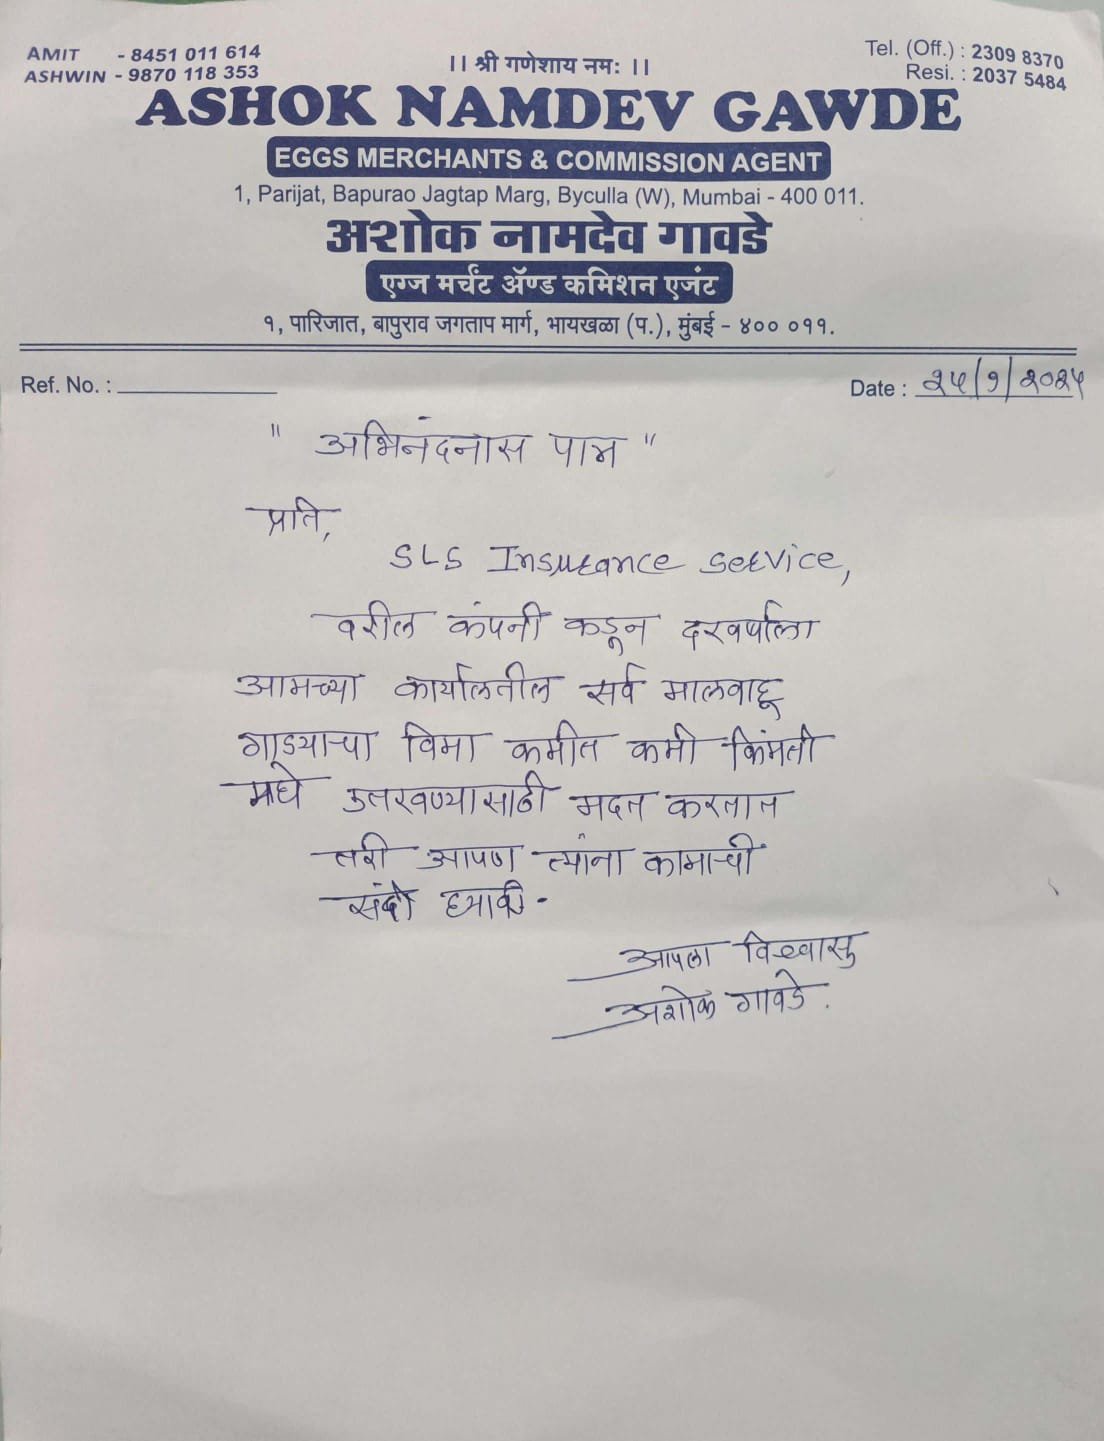 AMIT - 8451 011 614
ASHWIN - 9870 118 353
।। श्री गणेशाय नमः ।।
Tel. (Off.) : 2309 8370
Resi. : 2037 5484
ASHOK NAMDEV GAWDE
EGGS MERCHANTS & COMMISSION AGENT
1, Parijat, Bapurao Jagtap Marg, Byculla (W), Mumbai - 400 011.
अशोक नामदेव गावडे
एग्ज मर्चंट ॲण्ड कमिशन एजंट
१, पारिजात, बापुराव जगताप मार्ग, भायखळा (प.), मुंबई - ४०० ०११.
Ref. No. :
Date : २५/१/२०२५
" अभिनंदनास पात्र "
प्रति,
SLS Insurance Service,
वरील कंपनी कडून दरवर्षाला
आमच्या कार्यालतील सर्व मालवाहू
गाड्याचा विमा कमीत कमी किंमती
मधे उतरवण्यासाठी मदत करतात
तरी आपण त्यांना कामाची
संदी द्यावी.
आपला विश्वासु
अशोक गावडे.